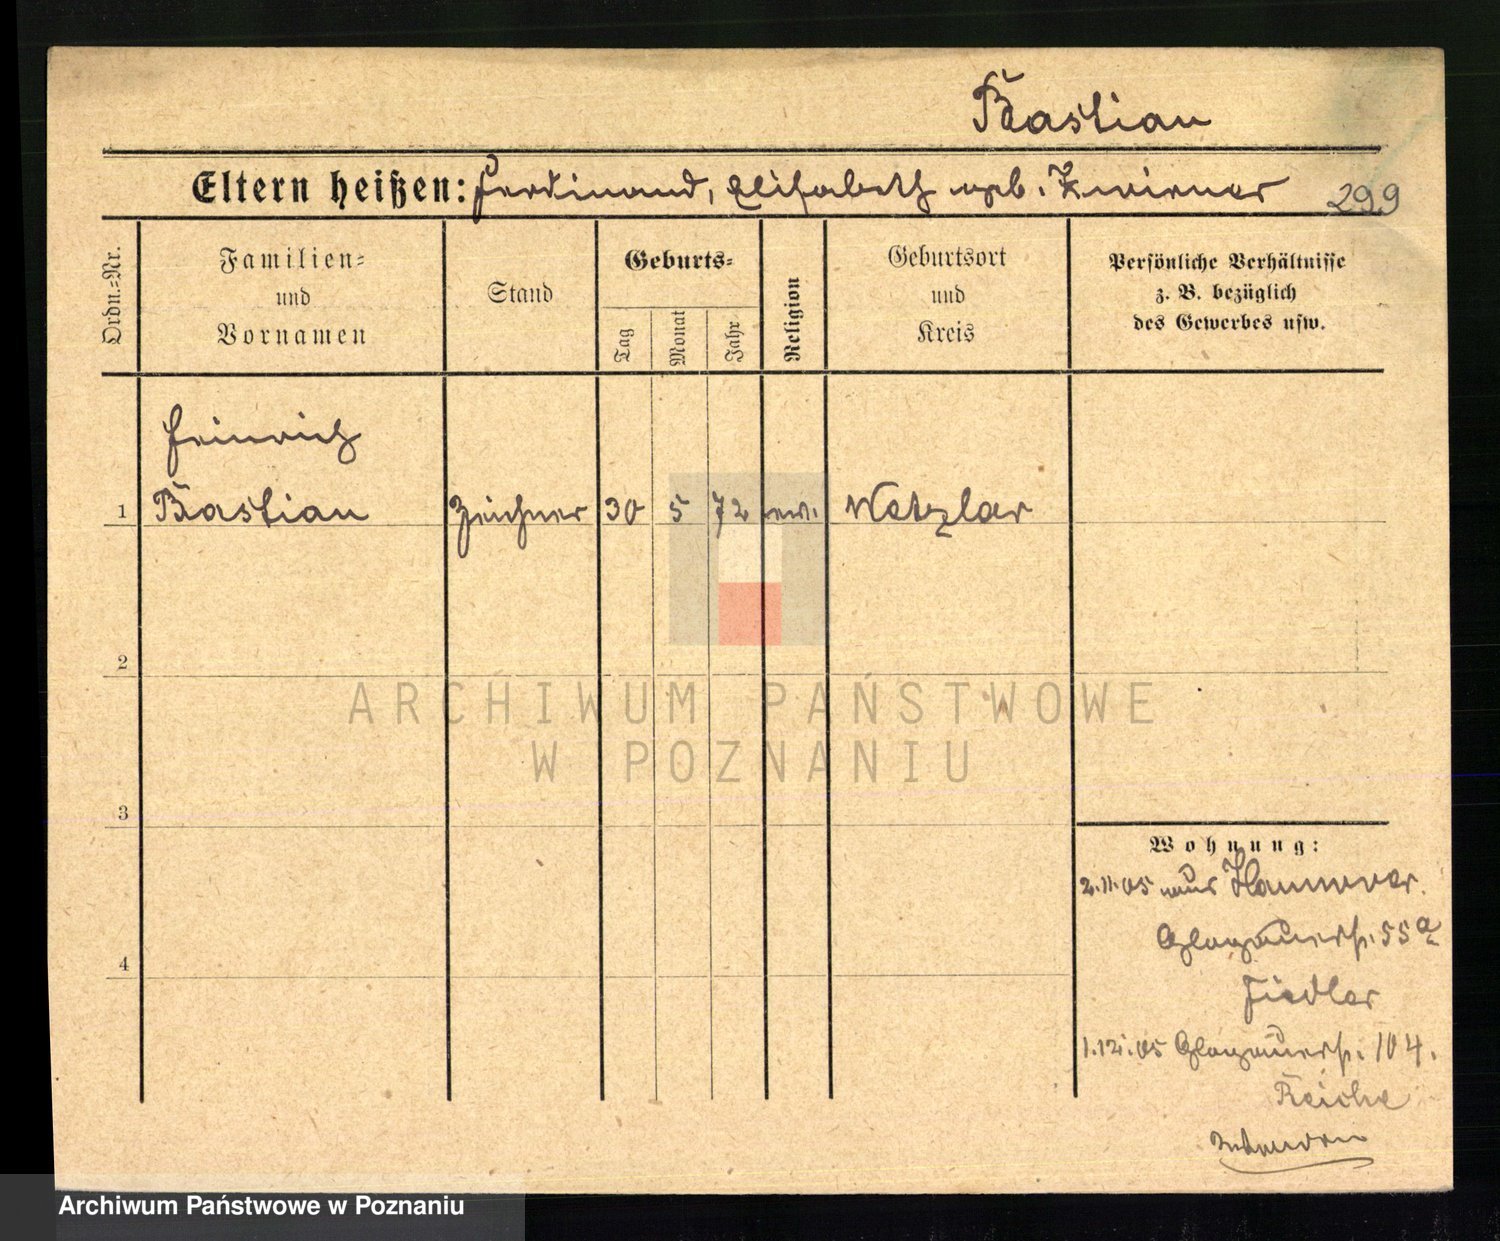 Bastian
Eltern heißen: Ferdinand, Elisabeth geb. Zwirner
299
Ordn.-Nr.
Familien-
und
Vornamen
Stand
Geburts-
Tag
Monat
Jahr
Religion
Geburtsort
und
Kreis
Persönliche Verhältnisse
z. B. bezüglich
des Gewerbes usw.
Heinrich
1 Bastian Zeichner 30 5 72 ev. Wetzlar
2
ARCHIWUM PAŃSTWOWE
W POZNANIU
3
Wohnung:
2.11.05 aus Hannover.
Glogauerstr. 55a
4
Fiedler
1.12.05 Glogauerstr. 104.
Reiche
Archiwum Państwowe w Poznaniu